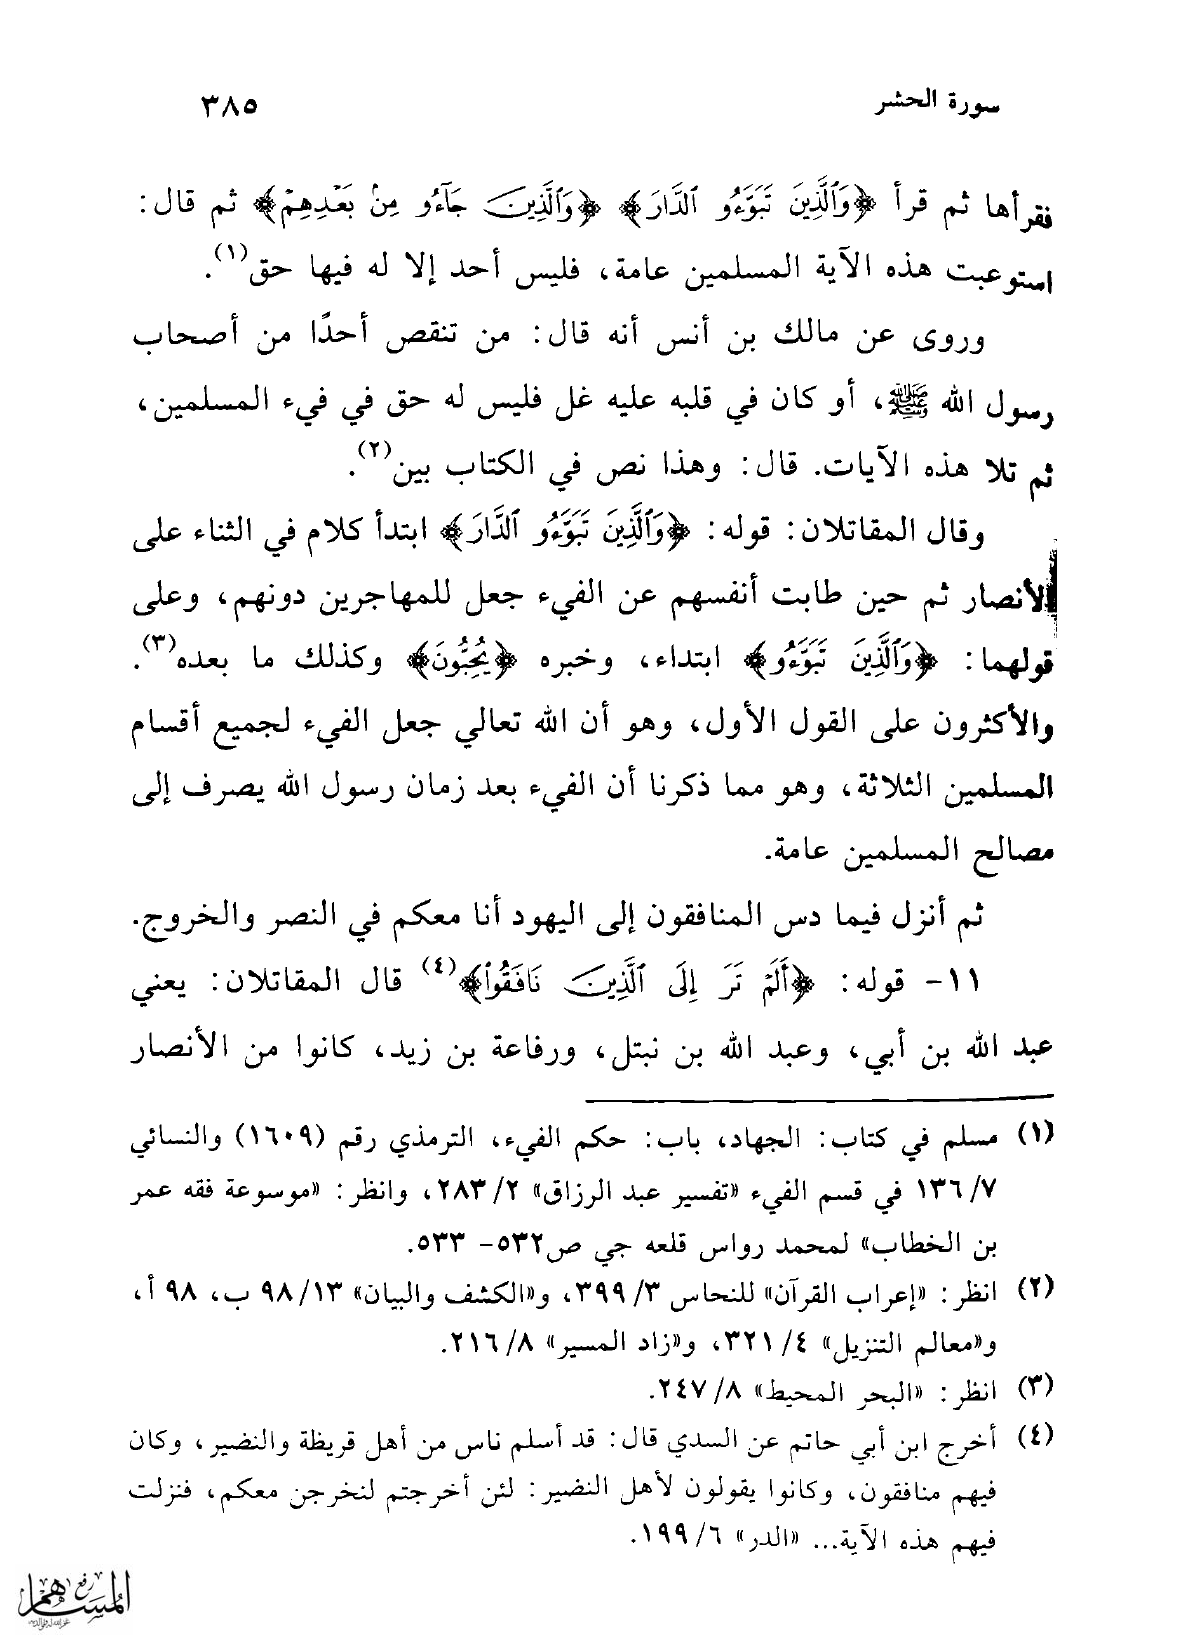 سورة الحشر ٣٨٥
فقرأها ثم قرأ ﴿وَٱلَّذِينَ تَبَوَّءُو ٱلدَّارَ﴾ ﴿وَٱلَّذِينَ جَآءُو مِنۢ بَعْدِهِمْ﴾ ثم قال:
استوعبت هذه الآية المسلمين عامة، فليس أحد إلا له فيها حق(١).
وروى عن مالك بن أنس أنه قال: من تنقص أحدًا من أصحاب
رسول الله ﷺ، أو كان في قلبه عليه غل فليس له حق في فيء المسلمين،
ثم تلا هذه الآيات. قال: وهذا نص في الكتاب بين(٢).
وقال المقاتلان: قوله: ﴿وَٱلَّذِينَ تَبَوَّءُو ٱلدَّارَ﴾ ابتدأ كلام في الثناء على
الأنصار ثم حين طابت أنفسهم عن الفيء جعل للمهاجرين دونهم، وعلى
قولهما: ﴿وَٱلَّذِينَ تَبَوَّءُو﴾ ابتداء، وخبره ﴿يُحِبُّونَ﴾ وكذلك ما بعده(٣).
والأكثرون على القول الأول، وهو أن الله تعالي جعل الفيء لجميع أقسام
المسلمين الثلاثة، وهو مما ذكرنا أن الفيء بعد زمان رسول الله يصرف إلى
مصالح المسلمين عامة.
ثم أنزل فيما دس المنافقون إلى اليهود أنا معكم في النصر والخروج.
١١- قوله: ﴿أَلَمْ تَرَ إِلَى ٱلَّذِينَ نَافَقُوا۟﴾(٤) قال المقاتلان: يعني
عبد الله بن أبي، وعبد الله بن نبتل، ورفاعة بن زيد، كانوا من الأنصار
(١) مسلم في كتاب: الجهاد، باب: حكم الفيء، الترمذي رقم (١٦٠٩) والنسائي
٧/ ١٣٦ في قسم الفيء «تفسير عبد الرزاق» ٢/ ٢٨٣، وانظر: «موسوعة فقه عمر
بن الخطاب» لمحمد رواس قلعه جي ص٥٣٢- ٥٣٣.
(٢) انظر: «إعراب القرآن» للنحاس ٣/ ٣٩٩، و«الكشف والبيان» ١٣/ ٩٨ ب، ٩٨ أ،
و«معالم التنزيل» ٤/ ٣٢١، و«زاد المسير» ٨/ ٢١٦.
(٣) انظر: «البحر المحيط» ٨/ ٢٤٧.
(٤) أخرج ابن أبي حاتم عن السدي قال: قد أسلم ناس من أهل قريظة والنضير، وكان
فيهم منافقون، وكانوا يقولون لأهل النضير: لئن أخرجتم لنخرجن معكم، فنزلت
فيهم هذه الآية... «الدر» ٦/ ١٩٩.